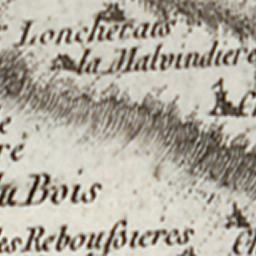 Lonchetais
la Malvindiere
re
du Bois
les Rebouſsieres